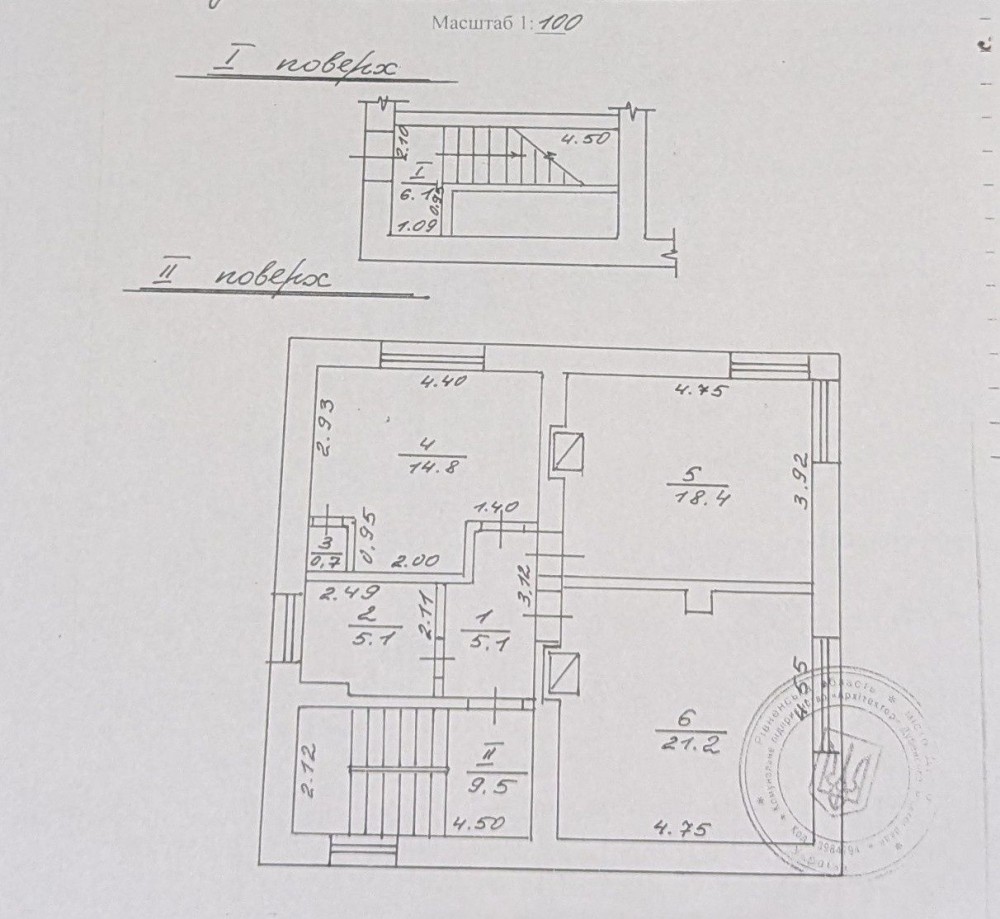 Масштаб 1:100
I поверх
2.10
4.50
I
6.1
0.95
1.09
II поверх
4.40
4.75
2.93
4
14.8
5
18.4
3.92
1.40
3
0,7
0,95
2.00
3,12
2.49
2
5.1
2.11
1
5.1
4.55
6
21.2
2.12
II
9.5
4.50
4.75